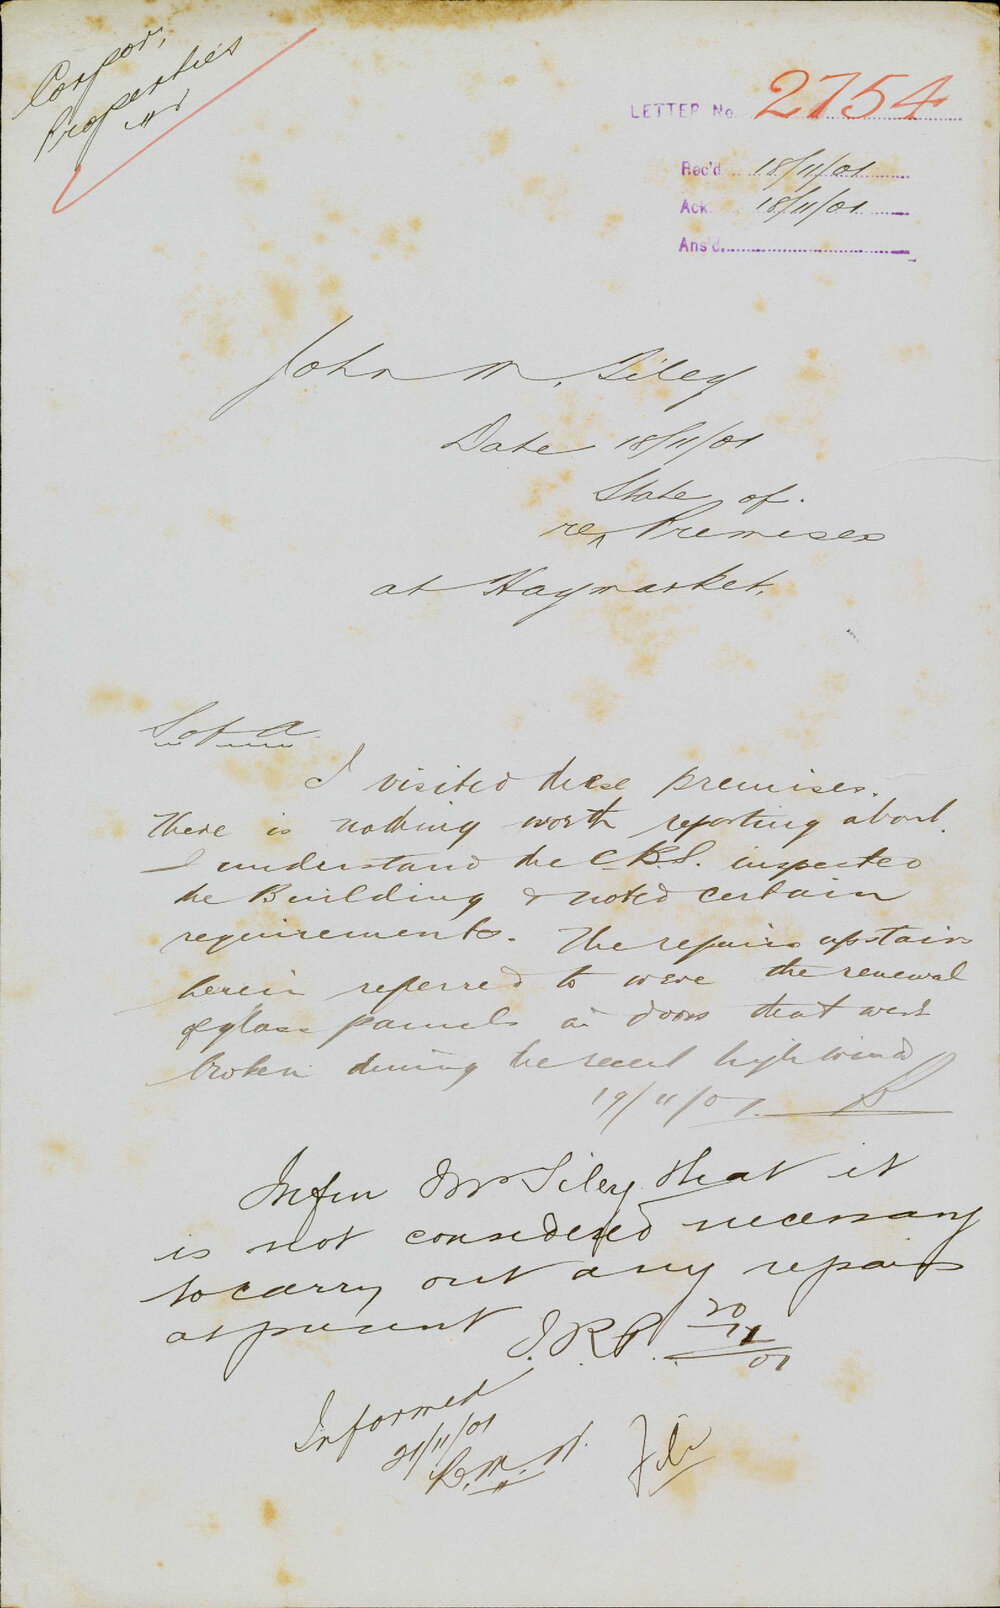 Corpor,
Properties
LETTER No. 2754
Rec'd 18/11/01
Ack 18/11/01
Ans'd
John M. Siley
Date 18/11/01
State of.
re ^ Premises
at Haymarket.
I visited these premises.
There is nothing worth reporting about.
I understand the C.B.S. inspected
the Building & noted certain
requirements. The repairs upstairs
herein referred to were the renewal
of glass panels in doors that were
broken during the recent high wind
19/11/01
Infm Mr Siley that it
is not considered necessary
to carry out any repairs
at present J.R.P. 20/11/01
Informed
21/11/01
File